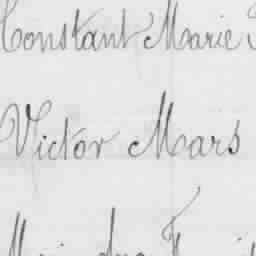 Constant Marie
Victor Mars